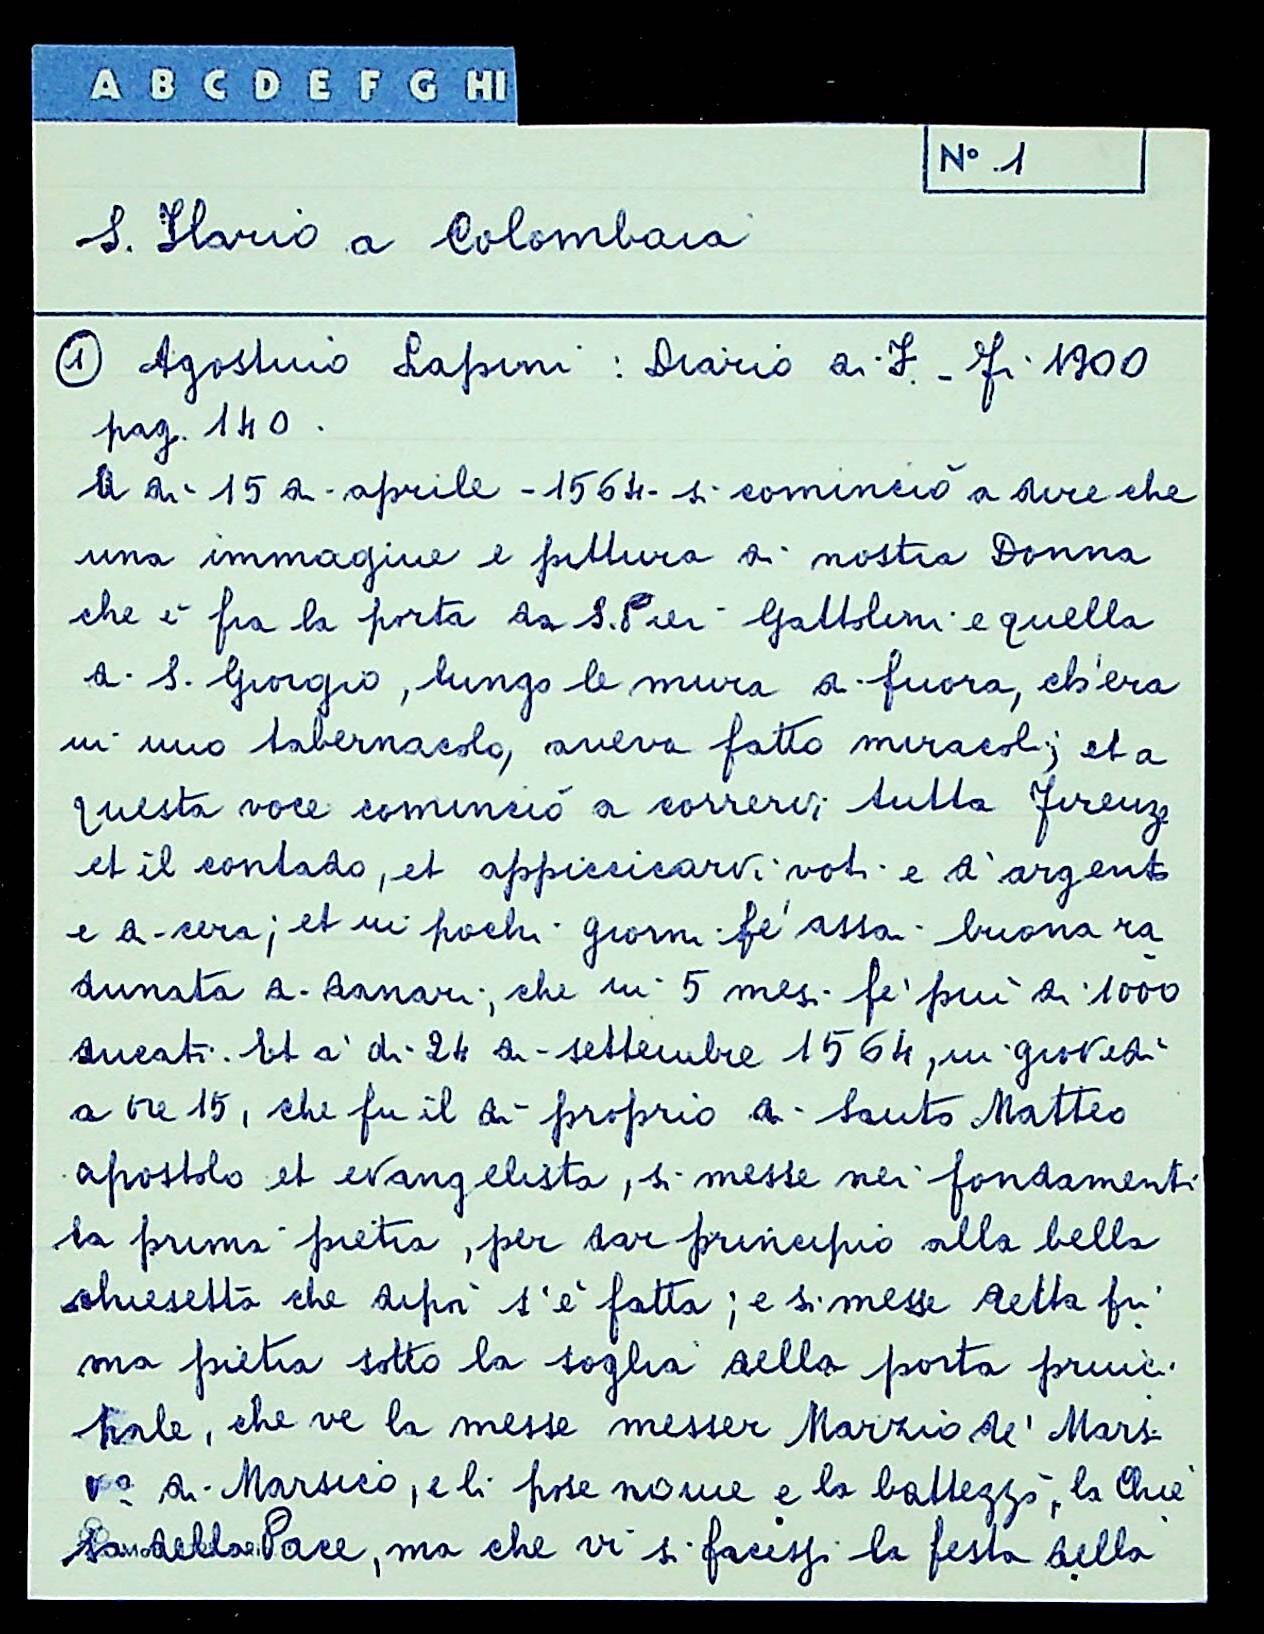 A B C D E F G HI
Nº 1
S. Ilario a Colombaia
① Agostino Lapini : Diario di F. - Fi. 1900
pag. 140.
A dì 15 di aprile - 1564 - si cominciò a dire che
una immagine e pittura di nostra Donna
che è fra la porta da S. Pier Gattolini e quella
di S. Giorgio, lungo le mura di fuora, ch'era
in uno tabernacolo, aveva fatto miracoli; et a
questa voce cominciò a correrci tutta Firenze
et il contado, et appiccicarvi voti e d'argento
e di cera; et in pochi giorni fe' assai buona ra
dunata di danari, che in 5 mesi fe' più di 1000
ducati. Et a' dì 24 di settembre 1564, in giovedì
a ore 15, che fu il dì proprio di Santo Matteo
apostolo et evangelista, si messe nei fondamenti
la prima pietra, per dar principio alla bella
chiesetta che dipoi s'è fatta; e si messe detta pri
ma pietra sotto la soglia della porta princi
pale, che ve la messe messer Marzio de' Marsi
vº di Marsico, e li pose nome e la battezzò, la Chie
sa della Pace, ma che vi si facessi la festa della